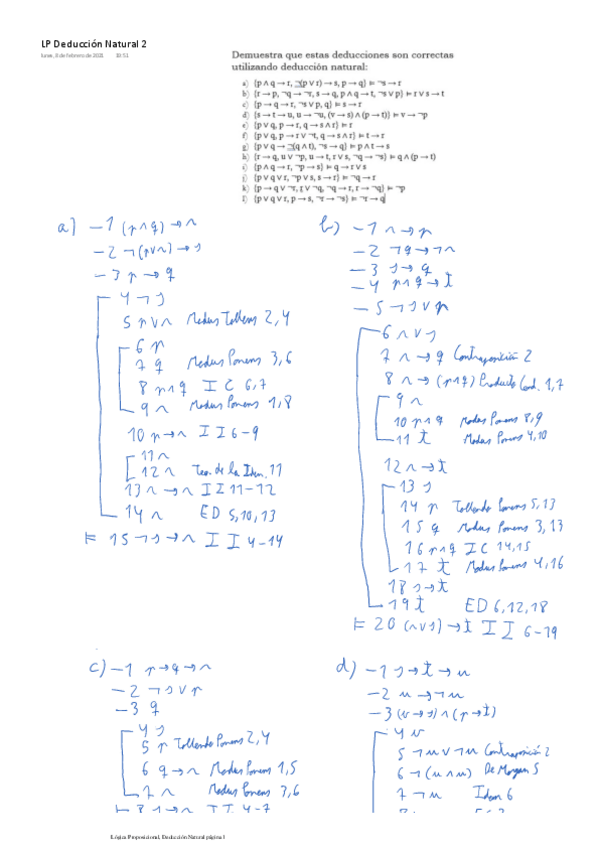 LP Deducción Natural 2
lunes, 8 de febrero de 2021 10:51
Demuestra que estas deducciones son correctas
utilizando deducción natural:
a) {p ∧ q → r, ¬(p ∨ r) → s, p → q} ⊨ ¬s → r
b) {r → p, ¬q → ¬r, s → q, p ∧ q → t, ¬s ∨ p} ⊨ r ∨ s → t
c) {p → q → r, ¬s ∨ p, q} ⊨ s → r
d) {s → t → u, u → ¬u, (v → s) ∧ (p → t)} ⊨ v → ¬p
e) {p ∨ q, p → r, q → s ∧ r} ⊨ r
f) {p ∨ q, p → r ∨ ¬t, q → s ∧ r} ⊨ t → r
g) {p ∨ q → ¬(q ∧ t), ¬s → q} ⊨ p ∧ t → s
h) {r → q, u ∨ ¬p, u → t, r ∨ s, ¬q → ¬s} ⊨ q ∧ (p → t)
i) {p ∧ q → r, ¬p → s} ⊨ q → r ∨ s
j) {p ∨ q ∨ r, ¬p ∨ s, s → r} ⊨ ¬q → r
k) {p → q ∨ ¬r, r ∨ ¬q, ¬q → r, r → ¬q} ⊨ ¬p
l) {p ∨ q ∨ r, p → s, ¬r → ¬s} ⊨ ¬r → q
a) –1 (p∧q) → r
–2 ¬(p∨r) → s
–3 p → q
4 ¬s
5 p∨r Modus Tollens 2,4
6 p
7 q Modus Ponens 3,6
8 p∧q I C 6,7
9 r Modus Ponens 1,8
10 p→r I I 6–9
11 r
12 r Teo. de la Iden. 11
13 r→r I I 11–12
14 r ED 5,10,13
⊨ 15 ¬s→r I I 4–14
b) –1 r→p
–2 ¬q→¬r
–3 s→q
–4 p∧q→t
–5 ¬s∨p
6 r∨s
7 r→q Contraposición 2
8 r→(p∧q) Producto Cond. 1,7
9 r
10 p∧q Modus Ponens 8,9
11 t Modus Ponens 4,10
12 r→t
13 s
14 p Tollendo Ponens 5,13
15 q Modus Ponens 3,13
16 p∧q I C 14,15
17 t Modus Ponens 4,16
18 s→t
19 t ED 6,12,18
⊨ 20 (r∨s)→t I I 6–19
c) –1 p→q→r
–2 ¬s∨p
–3 q
4 s
5 p Tollendo Ponens 2,4
6 q→r Modus Ponens 1,5
7 r Modus Ponens 3,6
⊨ 8 s→r I I 4–7
d) –1 s→t→u
–2 u→¬u
–3 (v→s)∧(p→t)
4 v
5 ¬u∨¬u Contraposición 2
6 ¬(u∧u) De Morgan 5
7 ¬u Idem 6
Lógica Proposicional, Deducción Natural página 1